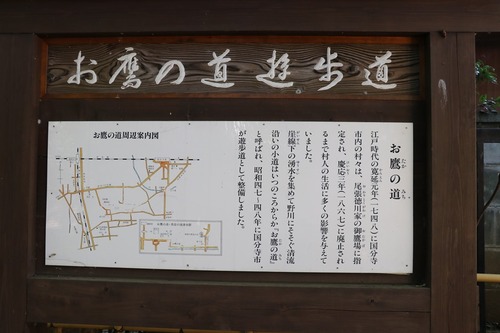 お鷹の道遊歩道
お鷹の道周辺案内図
お鷹の道
江戸時代の寛延元年(一七四八)に国分寺
市内の村々は、尾張徳川家の御鷹場に指
定され、慶応三年(一八六七)に廃止され
るまで村人の生活に多くの影響を与えて
いました。
崖線下の湧水を集めて野川にそそぐ清流
沿いの小道はいつのころからか『お鷹の道』
と呼ばれ、昭和四七~四八年に国分寺市
が遊歩道として整備しました。